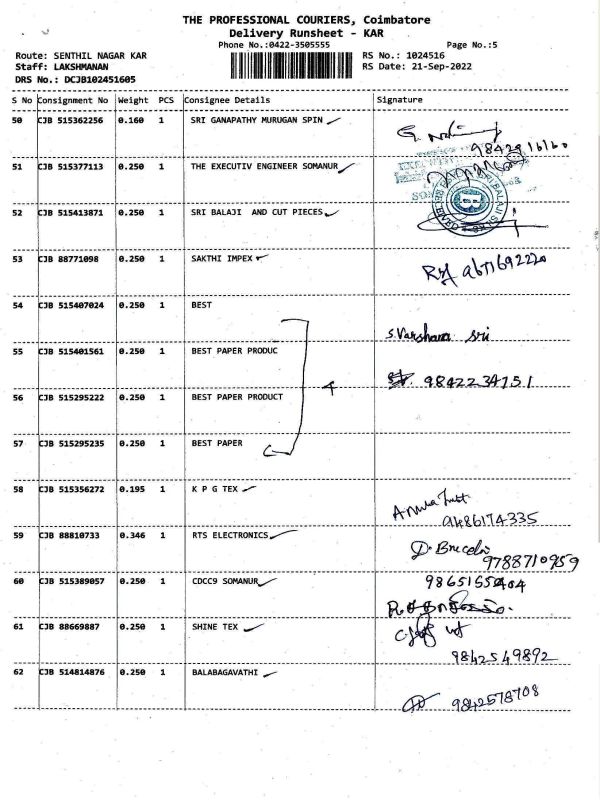 THE PROFESSIONAL COURIERS, Coimbatore
Delivery Runsheet - KAR
Phone No.:0422-3505555 Page No.:5
Route: SENTHIL NAGAR KAR RS No.: 1024516
Staff: LAKSHMANAN RS Date: 21-Sep-2022
DRS No.: DCJB102451605
S No Consignment No Weight PCS Consignee Details Signature
50 CJB 515362256 0.160 1 SRI GANAPATHY MURUGAN SPIN
51 CJB 515377113 0.250 1 THE EXECUTIV ENGINEER SOMANUR
52 CJB 515413871 0.250 1 SRI BALAJI AND CUT PIECES
53 CJB 88771098 0.250 1 SAKTHI IMPEX
54 CJB 515407024 0.250 1 BEST
S. Varshana Sri
55 CJB 515401561 0.250 1 BEST PAPER PRODUC
4 9842234751
56 CJB 515295222 0.250 1 BEST PAPER PRODUCT
57 CJB 515295235 0.250 1 BEST PAPER
58 CJB 515356272 0.195 1 K P G TEX
9486174335
59 CJB 88810733 0.346 1 RTS ELECTRONICS
9788710959
60 CJB 515389057 0.250 1 CDCC9 SOMANUR
61 CJB 88669887 0.250 1 SHINE TEX
9842549892
62 CJB 514814876 0.250 1 BALABAGAVATHI
9842578708